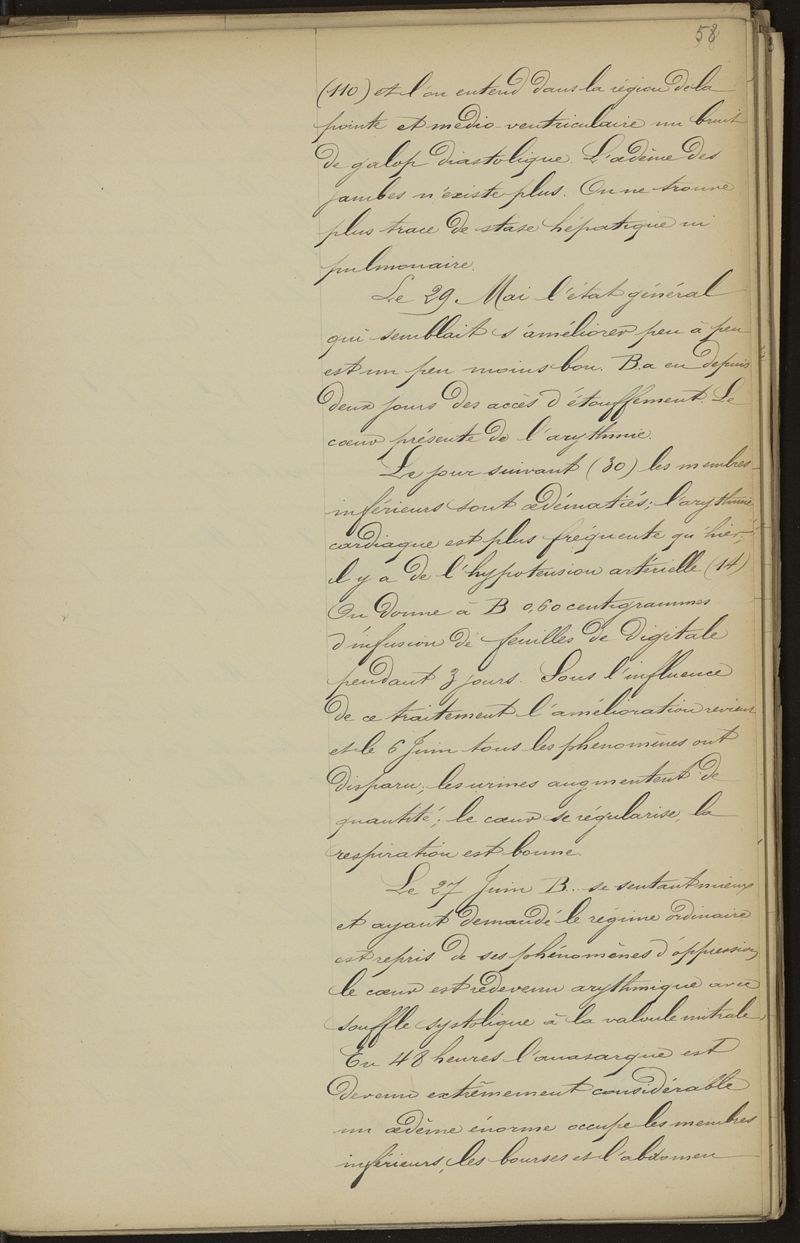 58
(110) et l'on entend dans la région de la
pointe et médio-ventriculaire un bruit
de galop diastolique. L'œdème des
jambes n'existe plus. On ne trouve
plus trace de stase hépatique ni
pulmonaire.
Le 29 Mai l'état général
qui semblait s'améliorer peu à peu
est un peu moins bon. B. a eu depuis
deux jours des accès d'étouffement. Le
cœur présente de l'arythmie.
Le jour suivant (30) les membres
inférieurs sont œdématiés; l'arythmie
cardiaque est plus fréquente qu'hier,
il y a de l'hypotension artérielle (14)
On donne à B 0,60 centigrammes
d'infusion de feuilles de digitale
pendant 3 jours. Sous l'influence
de ce traitement l'amélioration revient
et le 6 Juin tous les phenomènes ont
disparu; les urines augmentent de
quantité; le cœur se régularise, la
respiration est bonne.
Le 27 Juin B.. se sentant mieux
et ayant demandé le régime ordinaire
est repris de ses phénomènes d'oppression,
le cœur est redevenu arythmique avec
souffle systolique à la valvule mitrale.
En 48 heures l'anasarque est
devenu extrêmement considérable
un œdème énorme occupe les membres
inférieurs, les bourses et l'abdomen